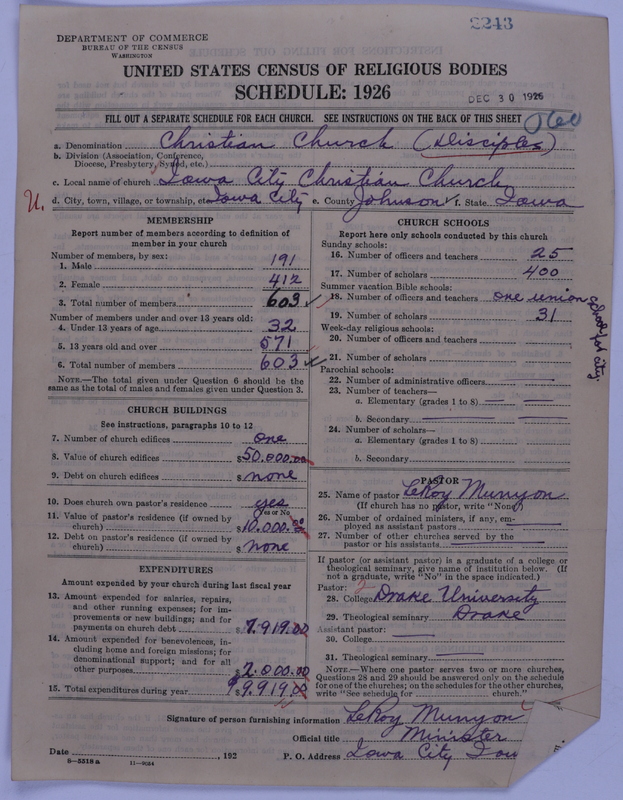 2243
DEPARTMENT OF COMMERCE
BUREAU OF THE CENSUS
WASHINGTON
UNITED STATES CENSUS OF RELIGIOUS BODIES
SCHEDULE: 1926
DEC 30 1926
FILL OUT A SEPARATE SCHEDULE FOR EACH CHURCH. SEE INSTRUCTIONS ON THE BACK OF THIS SHEET
060
a. Denomination Christian Church (Disciples)
b. Division (Association, Conference,
Diocese, Presbytery, Synod, etc.)
c. Local name of church Iowa City Christian Church
U. d. City, town, village, or township, etc. Iowa City e. County Johnson f. State Iowa
MEMBERSHIP
Report number of members according to definition of
member in your church
Number of members, by sex:
1. Male 191
2. Female 412
3. Total number of members 603
Number of members under and over 13 years old:
4. Under 13 years of age 32
5. 13 years old and over 571
6. Total number of members 603
NOTE.—The total given under Question 6 should be
the same as the total of males and females given under Question 3.
CHURCH BUILDINGS
See instructions, paragraphs 10 to 12
7. Number of church edifices one
8. Value of church edifices $50.000.00
9. Debt on church edifices $ none
10. Does church own pastor's residence yes
(Yes or No)
11. Value of pastor's residence (if owned by
church) $10.000.00
12. Debt on pastor's residence (if owned by
church) $ none
EXPENDITURES
Amount expended by your church during last fiscal year
13. Amount expended for salaries, repairs,
and other running expenses; for im-
provements or new buildings; and for
payments on church debt $7.919.00
14. Amount expended for benevolences, in-
cluding home and foreign missions; for
denominational support; and for all
other purposes $2.000.00
15. Total expenditures during year $9.919.00
CHURCH SCHOOLS
Report here only schools conducted by this church
Sunday schools:
16. Number of officers and teachers 25
17. Number of scholars 400
Summer vacation Bible schools:
18. Number of officers and teachers one union
school for city
19. Number of scholars 31
Week-day religious schools:
20. Number of officers and teachers
21. Number of scholars
Parochial schools:
22. Number of administrative officers
23. Number of teachers—
a. Elementary (grades 1 to 8)
b. Secondary
24. Number of scholars—
a. Elementary (grades 1 to 8)
b. Secondary
PASTOR
25. Name of pastor LeRoy Munyon
(If church has no pastor, write "None")
26. Number of ordained ministers, if any, em-
ployed as assistant pastors
27. Number of other churches served by the
pastor or his assistants
If pastor (or assistant pastor) is a graduate of a college or
theological seminary, give name of institution below. (If
not a graduate, write "No" in the space indicated.)
Pastor:
28. College Drake University
29. Theological seminary Drake
Assistant pastor:
30. College
31. Theological seminary
NOTE.—Where one pastor serves two or more churches,
Questions 28 and 29 should be answered only on the schedule
for one of the churches; on the schedules for the other churches,
write "See schedule for church."
Signature of person furnishing information LeRoy Munyon
Official title Minister
Date , 192 P. O. Address Iowa City Iow
8—5518 a 11—9054